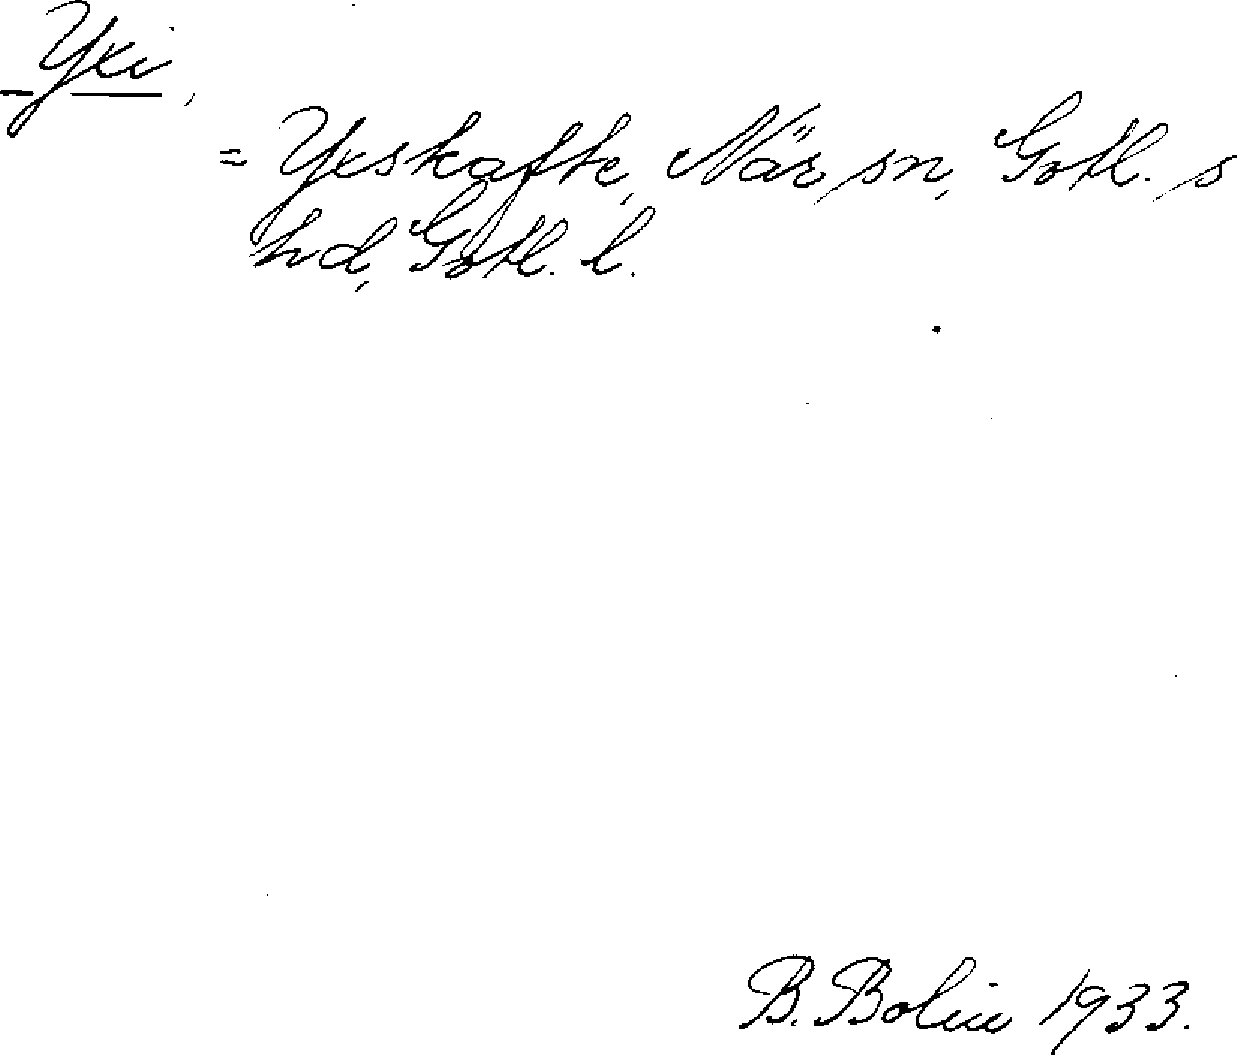 Yxi,
= Yxskafte, När sn, Gotl. s
hd, Gotl. l.
B. Bolin 1933.